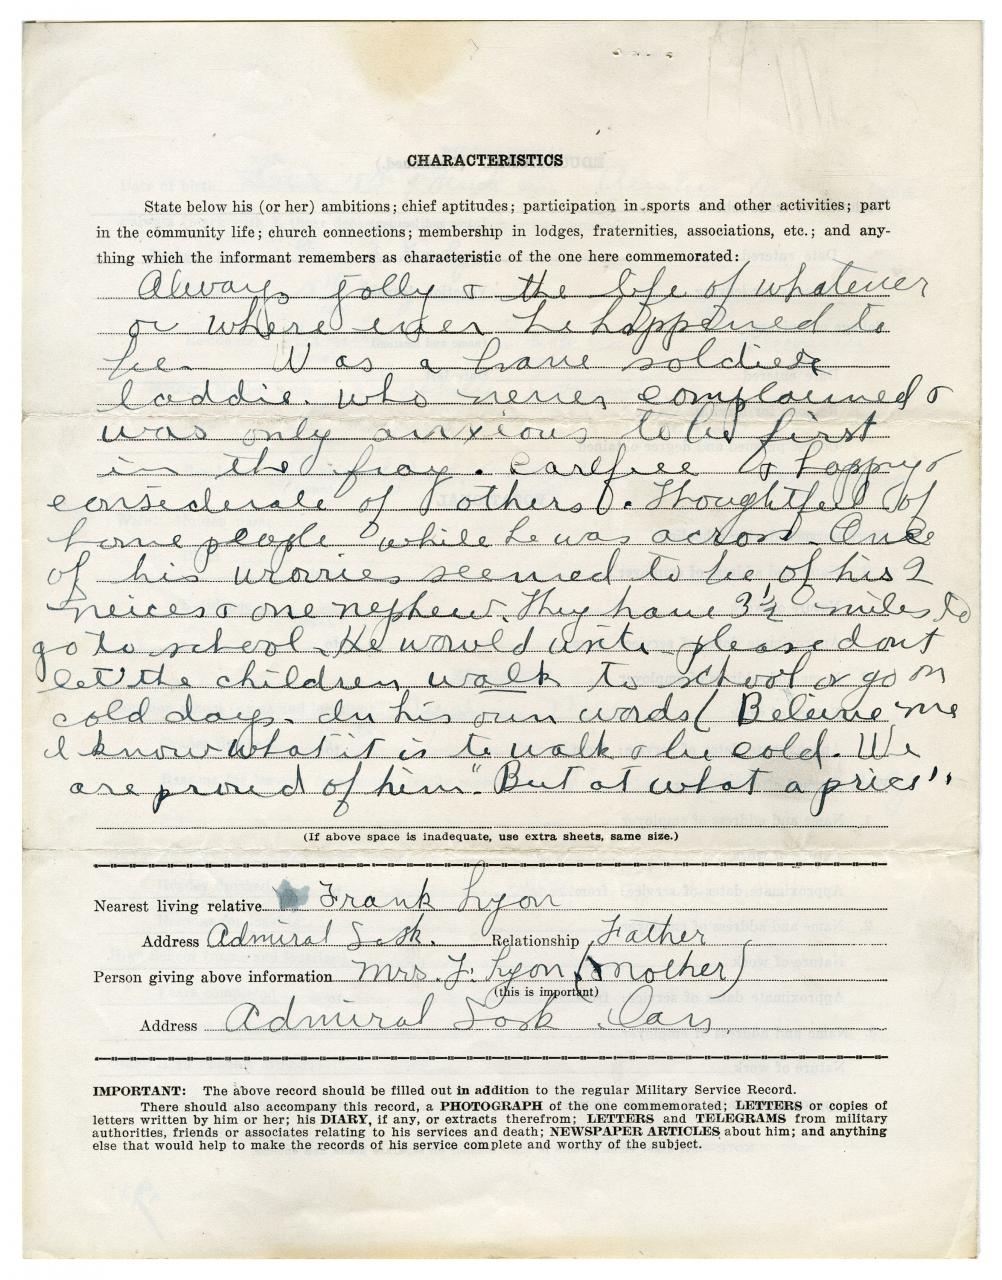 CHARACTERISTICS
State below his (or her) ambitions; chief aptitudes; participation in sports and other activities; part
in the community life; church connections; membership in lodges, fraternities, associations, etc.; and any-
thing which the informant remembers as characteristic of the one here commemorated:
Always jolly & the life of whatever
or where ever he happened to
be. Was a brave soldier
laddie. who never complained &
was only anxious to be first
in the fray. Carefree & happy &
considerate of others. Thoughtful of
home people while he was across. One
of his worries seemed to be of his 2
neices & one nephew. They have 3½ miles to
go to school. He would write please dont
let the children walk to school or go on
cold days. In his own words (Beleive me
I know what it is to walk & be cold. We
are proud of him. "But at what a price".
(If above space is inadequate, use extra sheets, same size.)
Nearest living relative Frank Lyon
Address Admiral Sask. Relationship Father
Person giving above information Mrs. F. Lyon (Mother)
(this is important)
Address Admiral Sask Can.
IMPORTANT: The above record should be filled out in addition to the regular Military Service Record.
There should also accompany this record, a PHOTOGRAPH of the one commemorated; LETTERS or copies of
letters written by him or her; his DIARY, if any, or extracts therefrom; LETTERS and TELEGRAMS from military
authorities, friends or associates relating to his services and death; NEWSPAPER ARTICLES about him; and anything
else that would help to make the records of his service complete and worthy of the subject.